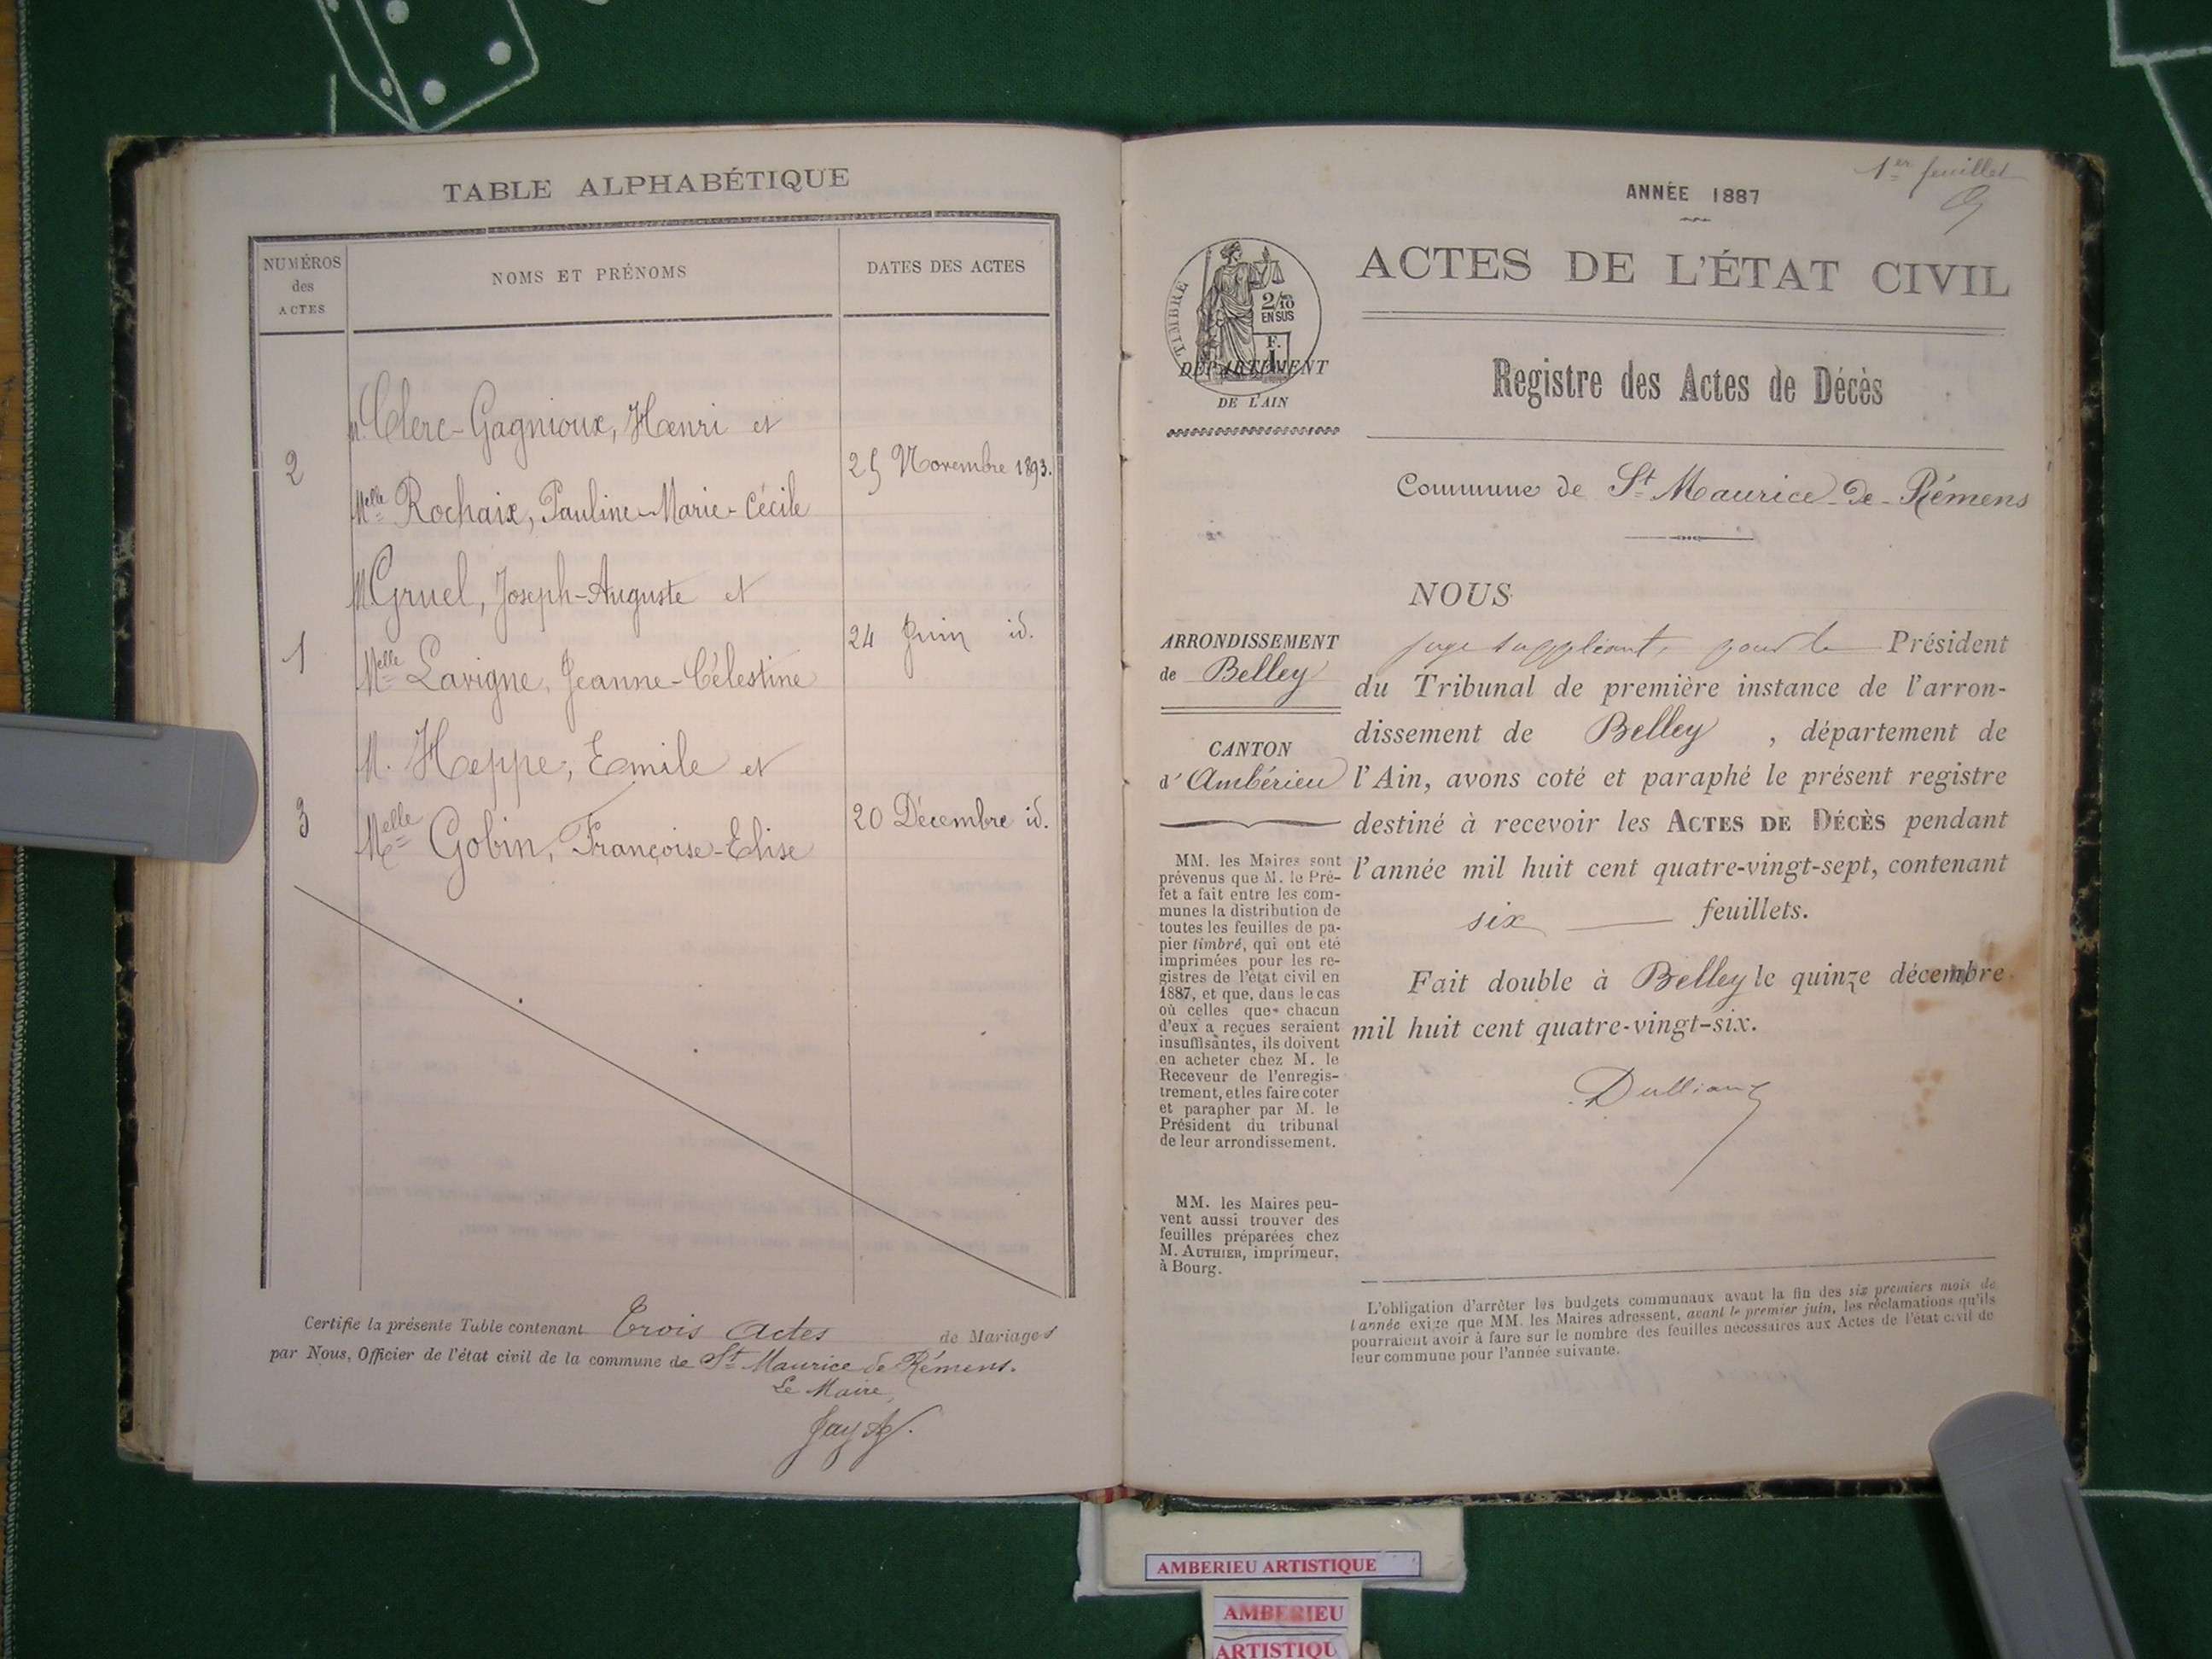 TABLE ALPHABÉTIQUE
NUMÉROS
des
ACTES
NOMS ET PRÉNOMS
DATES DES ACTES
M. Clerc-Gagnioux, Henri et
2
25 Novembre 1893.
Melle Rochaix, Pauline-Marie-Cécile
M Gruel, Joseph-Auguste et
1
24 Juin id.
Melle Lavigne, Jeanne-Célestine
M. Heppe, Emile et
3
20 Décembre id.
Melle Gobin, Françoise-Elise
Certifie la présente Table contenant Trois Actes de Mariages
par Nous, Officier de l'état civil de la commune de St Maurice de Rémens.
Le Maire,
Jay
1er feuillet
ANNÉE 1887
ACTES DE L'ÉTAT CIVIL
TIMBRE
2/10
EN SUS
F.
1
DÉPARTEMENT
DE L'AIN
Registre des Actes de Décès
Commune de St Maurice-de-Rémens
ARRONDISSEMENT
de Belley
CANTON
d'Ambérieu
MM. les Maires sont
prévenus que M. le Pré-
fet a fait entre les com-
munes la distribution de
toutes les feuilles de pa-
pier timbré, qui ont été
imprimées pour les re-
gistres de l'état civil en
1887, et que, dans le cas
où celles que chacun
d'eux a reçues seraient
insuffisantes, ils doivent
en acheter chez M. le
Receveur de l'enregis-
trement, et les faire coter
et parapher par M. le
Président du tribunal
de leur arrondissement.
MM. les Maires peu-
vent aussi trouver des
feuilles préparées chez
M. AUTHIER, imprimeur,
à Bourg.
NOUS
juge suppléant, pour le Président
du Tribunal de première instance de l'arron-
dissement de Belley, département de
l'Ain, avons coté et paraphé le présent registre
destiné à recevoir les ACTES DE DÉCÈS pendant
l'année mil huit cent quatre-vingt-sept, contenant
six feuillets.
Fait double à Belley le quinze décembre
mil huit cent quatre-vingt-six.
L'obligation d'arrêter les budgets communaux avant la fin des six premiers mois de
l'année exige que MM. les Maires adressent, avant le premier juin, les réclamations qu'ils
pourraient avoir à faire sur le nombre des feuilles nécessaires aux Actes de l'état civil de
leur commune pour l'année suivante.
AMBERIEU ARTISTIQUE
AMBERIEU
ARTISTIQU